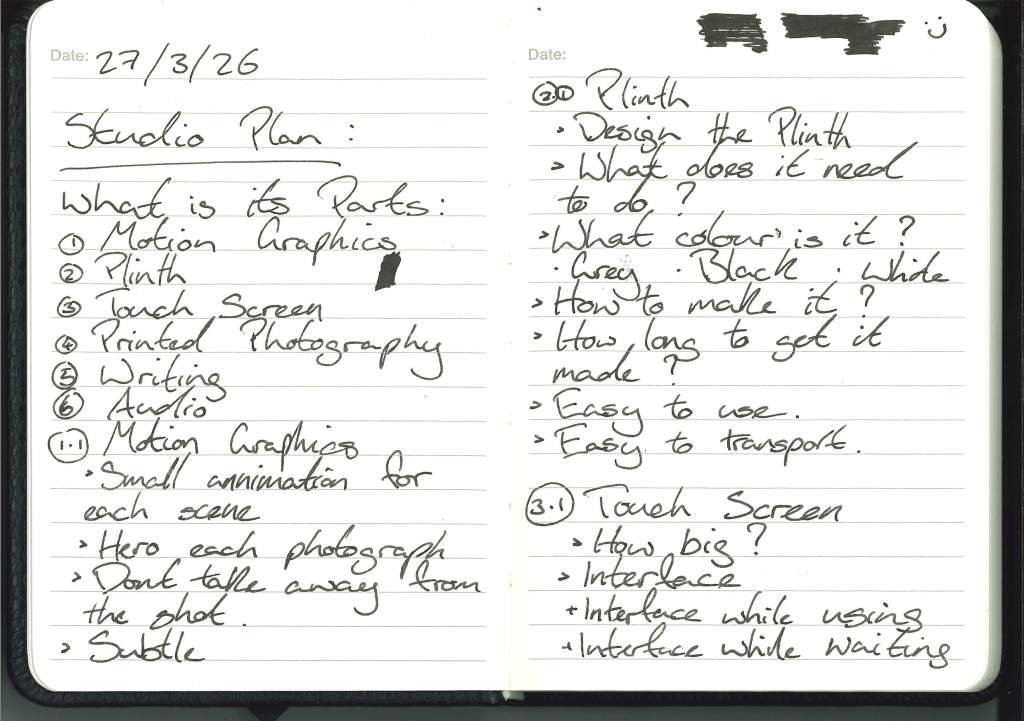 Date: 27/3/26
Studio Plan:
What is its Parts:
① Motion Graphics
② Plinth
③ Touch Screen
④ Printed Photography
⑤ Writing
⑥ Audio
1.1 Motion Graphics
> Small annimation for
each scene
> Hero each photograph
> Dont take away from
the shot.
> Subtle
Date:
:)
2.1 Plinth
> Design the Plinth
> What does it need
to do?
> What colour is it?
· Grey · Black · White
> How to make it?
> How long to get it
made?
> Easy to use.
> Easy to transport.
3.1 Touch Screen
> How big?
> Interface
+ Interface while using
+ Interface while waiting